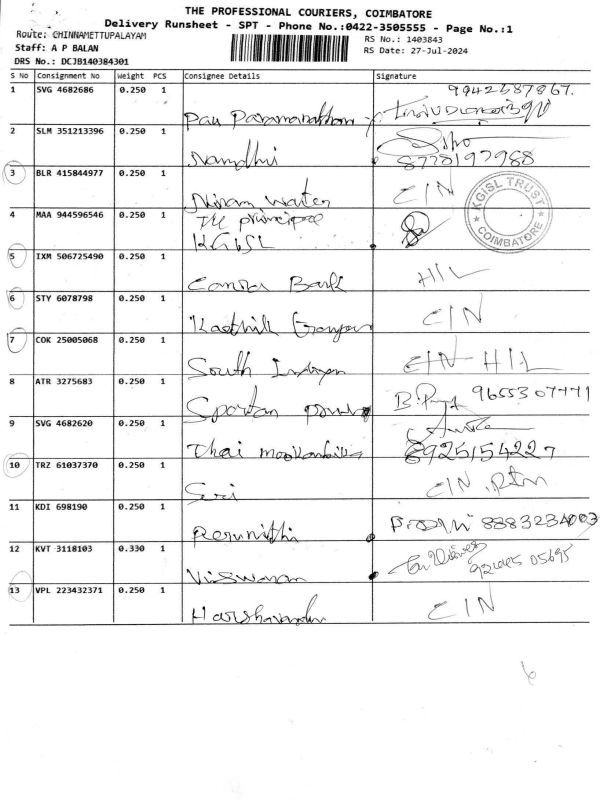 THE PROFESSIONAL COURIERS, COIMBATORE
Delivery Runsheet - SPT - Phone No.:0422-3505555 - Page No.:1
Route: CHINNAMETTUPALAYAM
RS No.: 1403843
Staff: A P BALAN
RS Date: 27-Jul-2024
DRS No.: DCJB140384301
S No Consignment No Weight PCS Consignee Details Signature
1 SVG 4682686 0.250 1 9942587867.
2 SLM 351213396 0.250 1 Nandhi 8778197988
3 BLR 415844977 0.250 1 CIN
4 MAA 944596546 0.250 1 The principal
KGISL
KGISL TRUST
COIMBATORE
5 IXM 506725490 0.250 1 Canara Bank HIL
6 STY 6078798 0.250 1 Kaethik CIN
7 COK 25005068 0.250 1 South Indian CIN HIL
8 ATR 3275683 0.250 1 Spartan 9655307771
9 SVG 4682620 0.250 1 Thai mookambika 8925154227
10 TRZ 61037370 0.250 1 Sri CIN
11 KDI 698190 0.250 1 Perunithi 8883234003
12 KVT 3118103 0.330 1 Viswaram
13 VPL 223432371 0.250 1 CIN
6